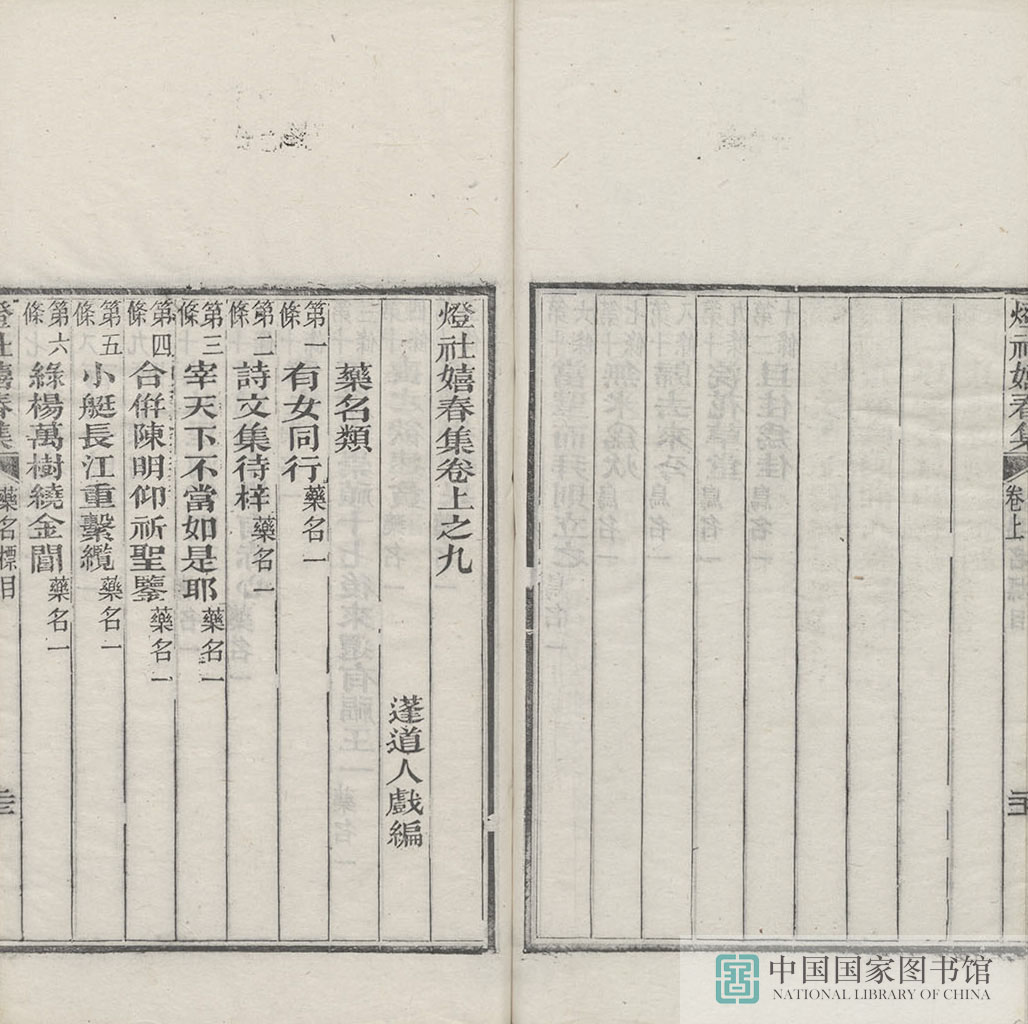 燈社嬉春集
卷上
燈社嬉春集卷上之九
蓬道人戲編
藥名類
第一條 有女同行 藥名一
第二條 詩文集待梓 藥名一
第三條 宰天下不當如是耶 藥名一
第四條 合倂陳明仰祈聖鑒 藥名一
第五條 小艇長江重繫纜 藥名一
第六條 綠楊萬樹繞金閶 藥名一
燈社嬉春集
藥名標目
中国国家图书馆
NATIONAL LIBRARY OF CHINA